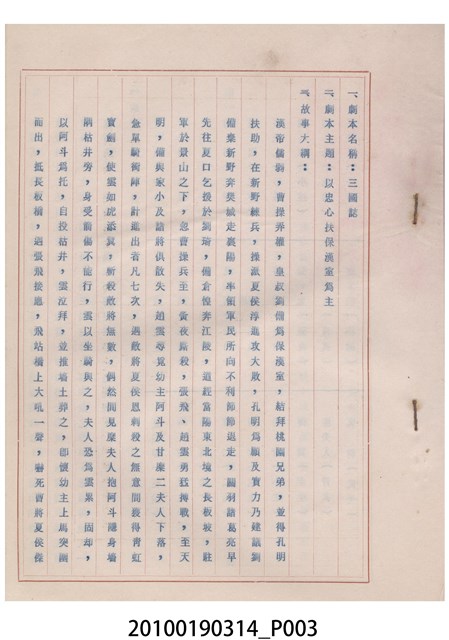 一、劇本名稱：三國誌
二、劇本主題：以忠心扶保漢室為主
三、故事大綱：
漢帝儒弱，曹操弄權，皇叔劉備為保漢室，結拜桃園兄弟，並得孔明
扶助，在新野練兵，操派夏侯淳進攻大敗，孔明為顧及實力乃建議劉
備棄新野奔樊城走襄陽，率領軍民所向不利節節退走，關羽諸葛亮早
先往夏口乞援於劉琦，備倉惶奔江陵，道經當陽東北境之長板坡，駐
軍於景山之下，忽曹操兵至，黃夜廝殺，張飛、趙雲勇猛搏戰，至天
明，備與家小及諸將俱散失，趙雲尋覓幼主阿斗及甘糜二夫人下落，
金單騎衝陣，計進出者凡七次，遇敵將夏侯恩刺殺之無意間獲得青虹
寶劍，使雲如虎添翼，斬殺敵將無數，偶然間見糜夫人抱阿斗隱身墻
隅枯井旁，身受箭傷不能行，雲以坐騎與之，夫人恐為雲累，固却，
以阿斗為托，自投枯井，雲泣拜，並推墻土葬之，即懷幼主上馬突圍
而出，抵長板橋，遇張飛接應，飛站橋上大吼一聲，嚇死曹將夏侯傑
20100190314_P003